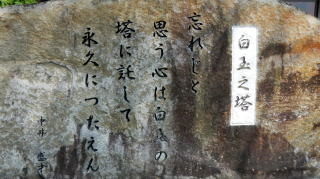 白玉之塔
忘れじと
思う心は白玉の
塔に託して
永久につたえん